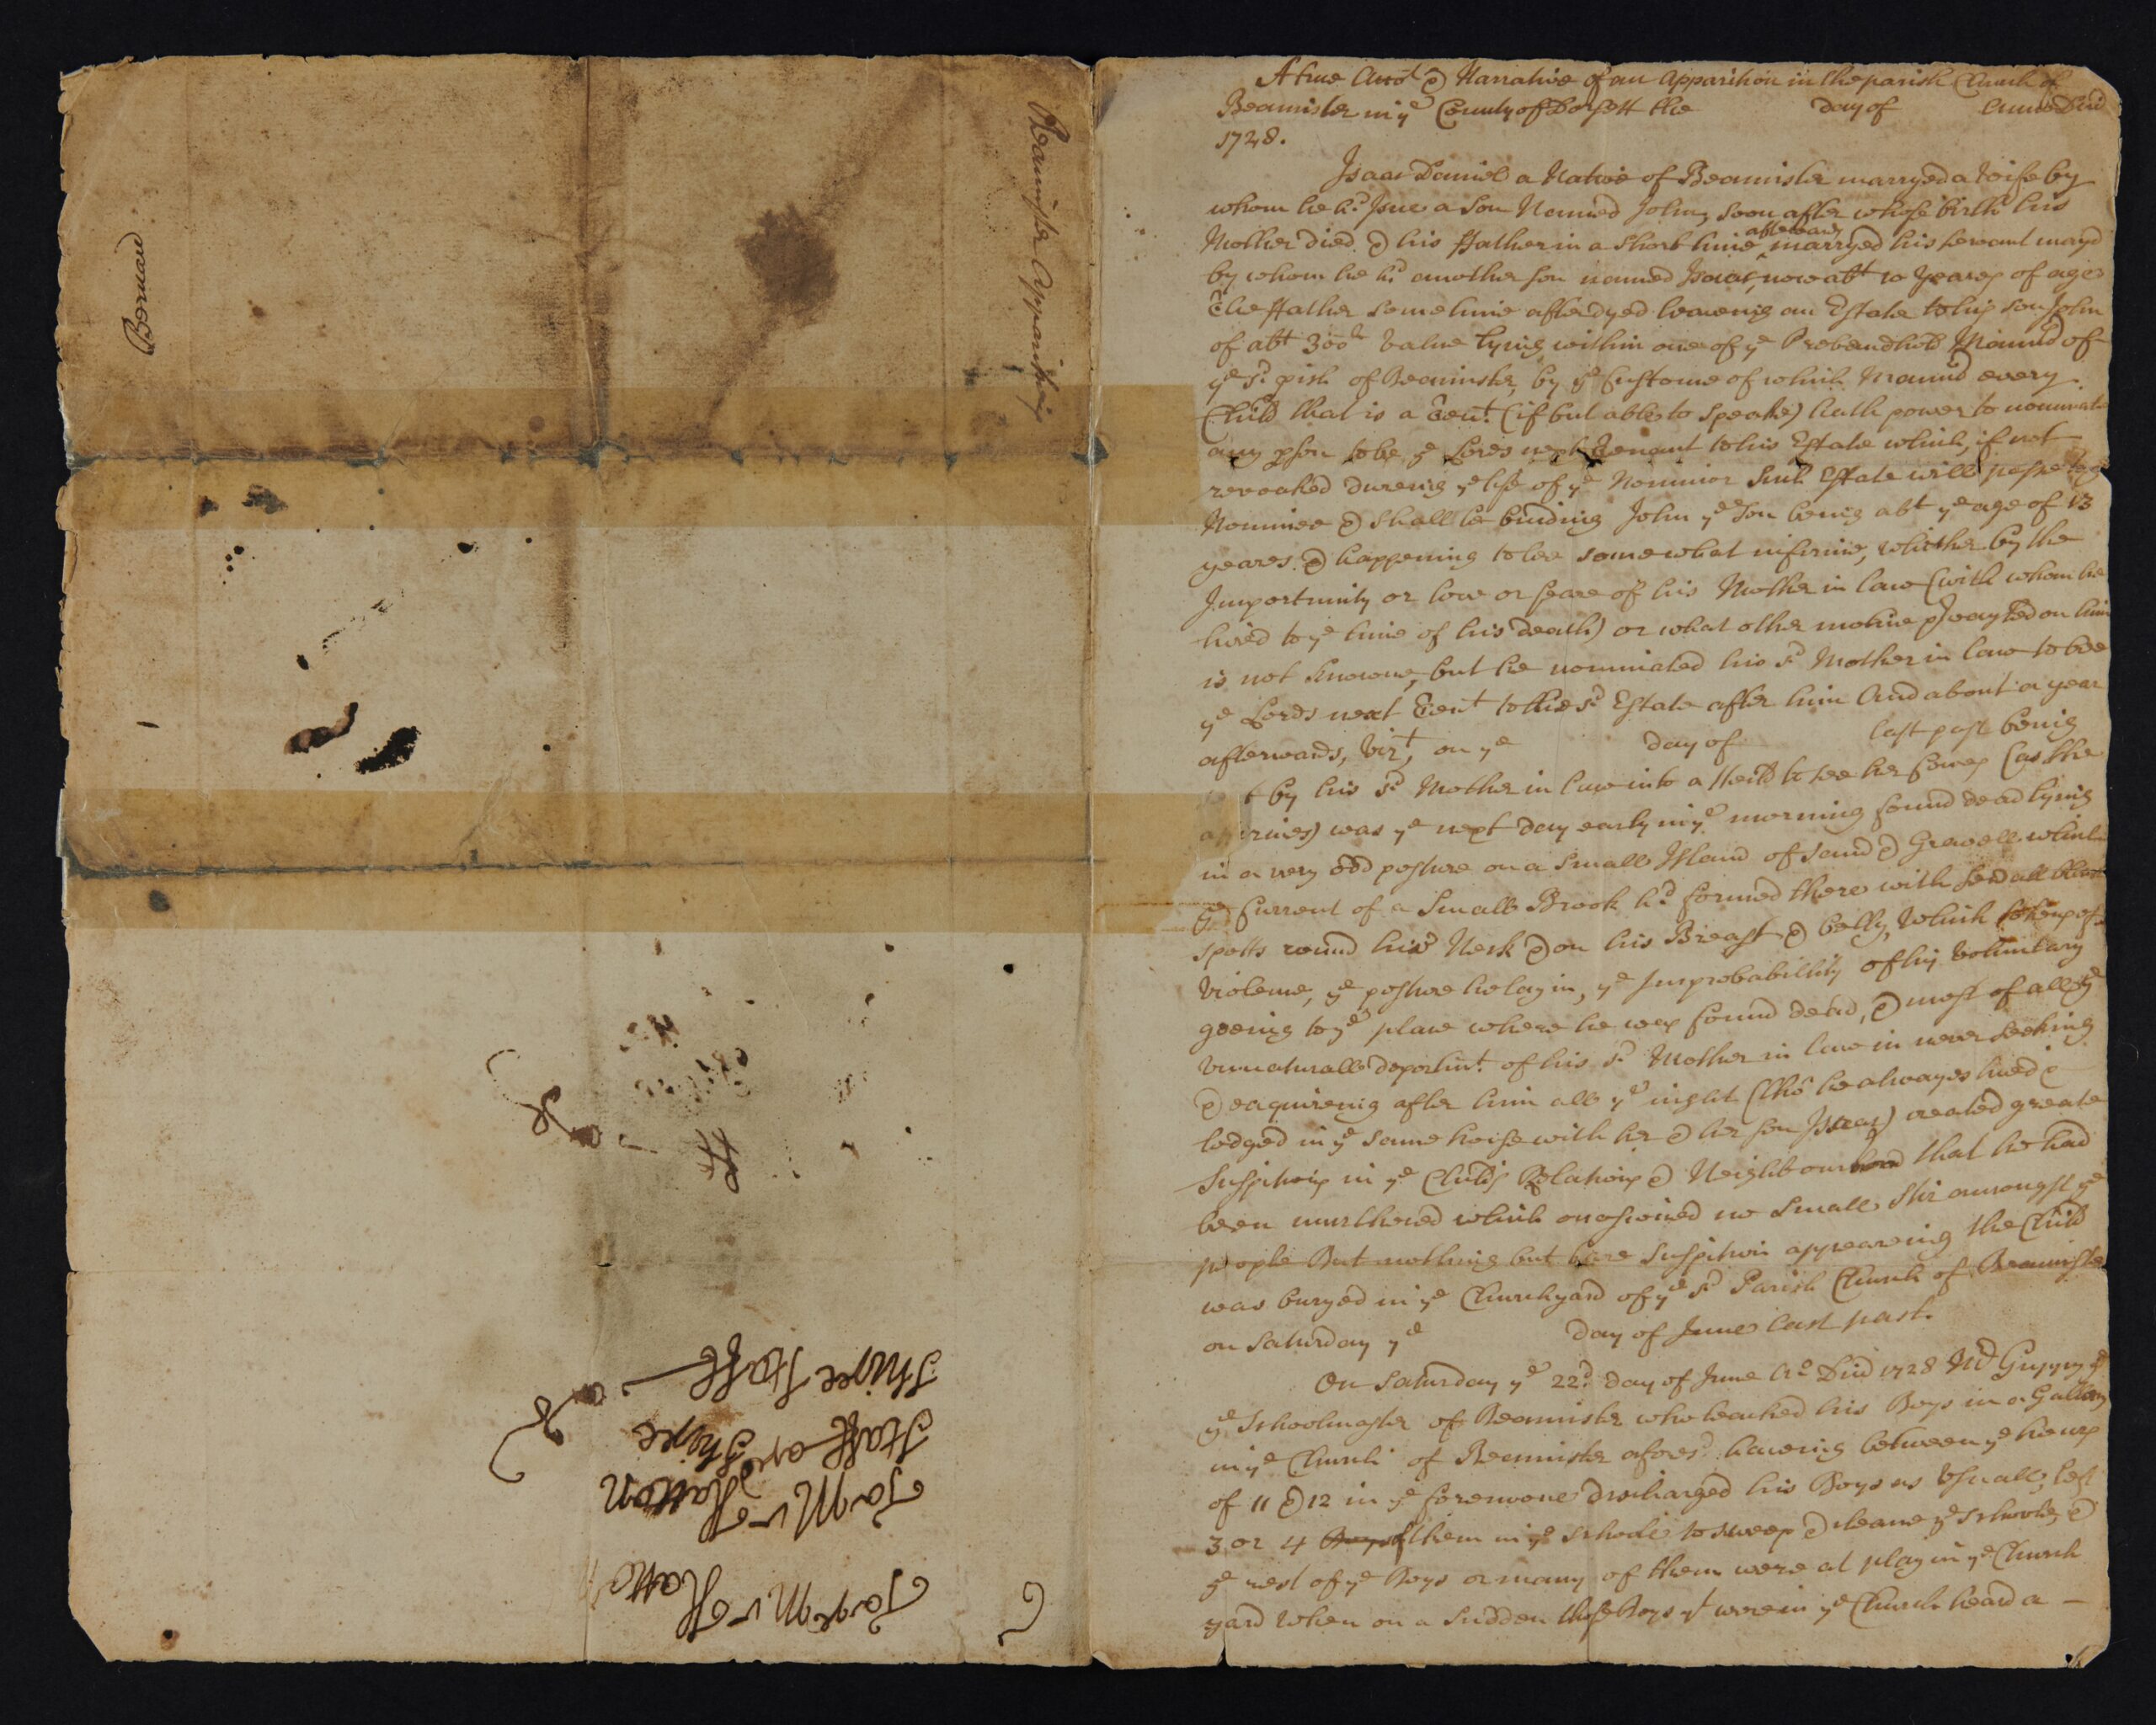 Beaminster Apparition
Bernard
A true Acco.t & Narrative of an Apparition in the parish Church of
Beamister in y.e County of Dorsett the day of Anno Dni
1728.
Isaac Daniel a Native of Beamister marryed a Wife by
whom he h.d Issue a Son Named John, soon after whose birth his
Mother died & his ffather in a short time afterwards marryed his servant mayd
by whom he h.d another son named Isaac, now ab.t 10 yeares of age
The ffather sometime after dyed leaveing an Estate to his son John
of abt 300.li value lyeing within one of y.e Prebendhold Mann.rs of
y.e s.d pish of Beaminster, by y.e Custome of which Mann.r every
Child that is a Ten.t (if but able to speake) hath power to nominate
any pson to be y.e Lords next Tenant to his Estate which, if not
revoaked dureing y.e life of y.e Nominor such Estate will passe to y.e
Nominee & shall be binding John y.e Son being abt y.e age of 13
yeares & happening to bee somewhat infirme, whither by the
Importunity or love or feare of his Mother in law (with whom he
lived to y.e time of his death) or what other motive pvayled on him
is not knowne, but he nominated his s.d Mother in law to bee
y.e Lords next Ten.t to the s.d Estate after him And about a year
afterwards, viz.t, on y.e day of last past being
by his s.d Mother in law into a ffeild to see her Cowes (as she
was y.e next day early in y.e morning found dead lyeing
in a very odd posture on a small Island of sand & Gravell which
y.e Current of a Small Brook h.d formed there with black
spotts round his Neck & on his Breast & belly, which tokens of
violence, y.e posture he lay in, y.e Improbability of his voluntary
goeing to y.e place where he was found dead, & most of all y.e
unnaturall deportm.t of his s.d Mother in law in never seeking
& enquireing after him all y.e night (tho' he alwayes lived &
lodged in y.e same house with her & her son Isaac) created greate
Suspitions in y.e Childs Relations & Neighbours that he had
been murthered which occasioned no small stir amongst y.e
people But nothing but bare Suspition appeareing the Child
was buryed in y.e Churchyard of y.e s.d Parish Church of Beaminster
on Saturday y.e day of June last past.
On Saturday y.e 22.d day of June A.o Dni 1728 Mr Guppy
y.e Schoolmaster of Beamister who teached his Boys in a Gallery
in y.e Church of Beamister afores.d haveing between y.e houres
of 11 & 12 in y.e forenoone discharged his Boys as Usuall, left
3 or 4 Boys of them in y.e schoole to sweep & cleane y.e schoole, &
y.e rest of y.e Boys or many of them were at play in y.e Church
yard When on a Sudden those Boys y.t were in y.e Church heard a –